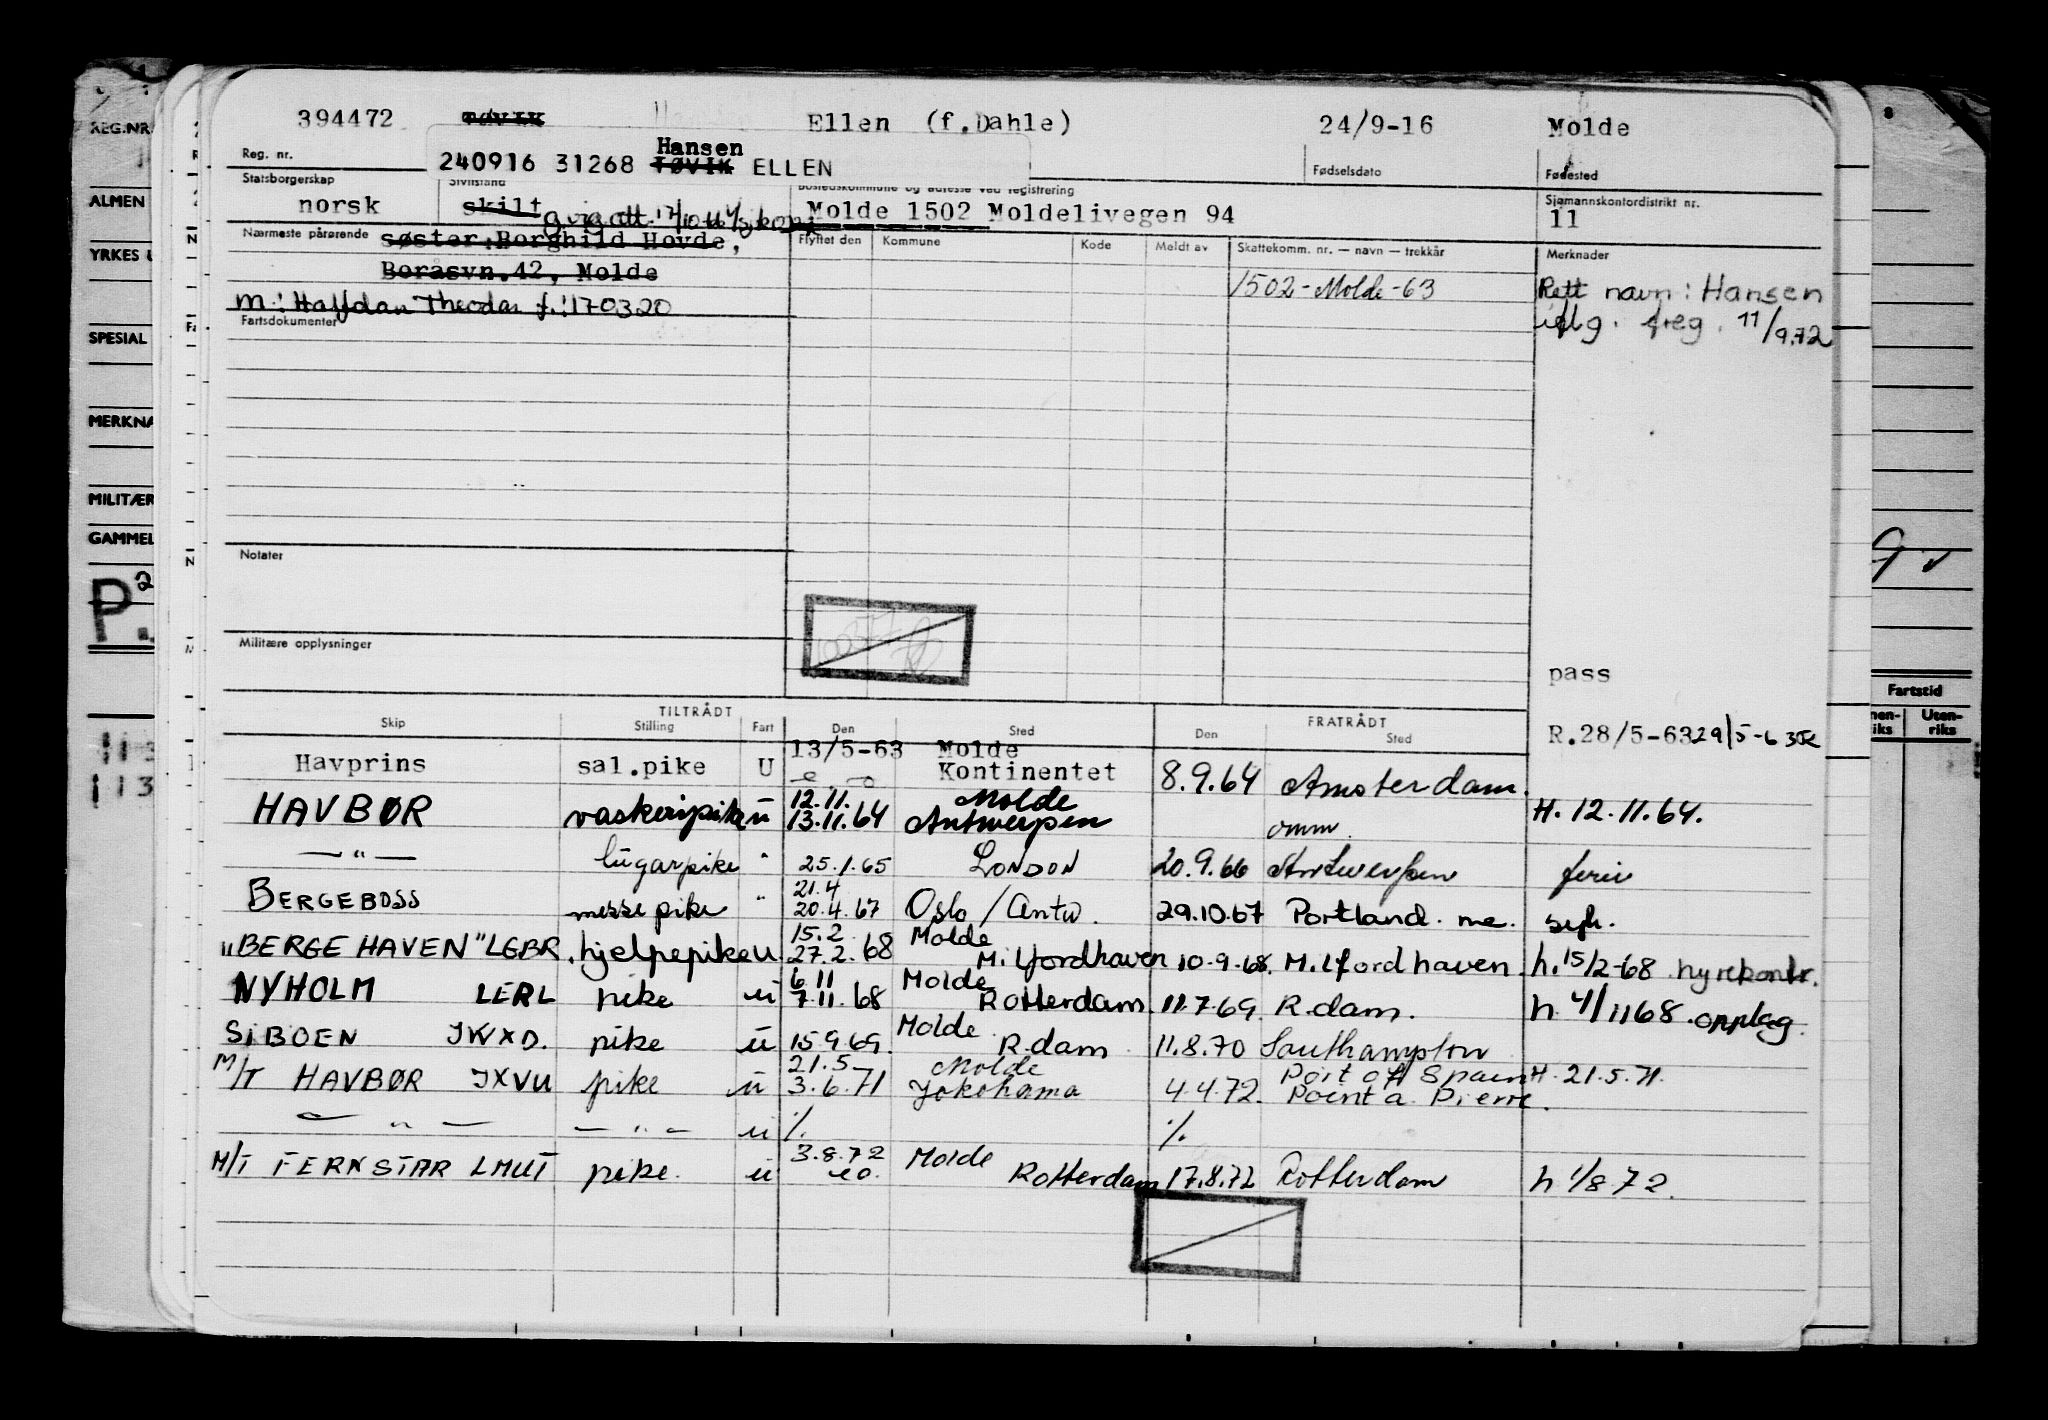 394472 TØVIK Ellen (f.Dahle) 24/9-16 Molde
Hansen
240916 31268 TØVIK ELLEN
Reg. nr. Fødselsdato Fødested
Statsborgerskap Sivilstand Bostedskommune og adresse ved registrering Sjømannskontordistrikt nr.
norsk skilt Molde 1502 Moldelivegen 94 11
Nærmeste pårørende søster:Borghild Hovde, Flyttet den Kommune Kode Meldt av Skattekomm. nr. — navn — trekkår Merknader
Boråsvn.42, Molde 1502-Molde-63 Rett navn: Hansen
M.: Halfdan Theodor f.:170320 iflg. freg. 11/9.72
Fartsdokumenter
Notater
Militære opplysninger
pass
TILTRÅDT FRATRÅDT
Skip Stilling Fart Den Sted Den Sted
R.28/5-63 29/5-63
13/5-63 Molde
Havprins sal.pike U Kontinentet 8.9.64 Amsterdam.
12.11. Molde
HAVBØR vaskeripike u 13.11.64 Antwerpen omm. H. 12.11.64.
— " — lugarpike " 25.1.65 LONDON 20.9.66 Antwerpen ferie
21.4
BERGEBOSS messepike " 20.4.67 Oslo/Antw. 29.10.67 Portland. me. syk.
15.2 Molde
"BERGE HAVEN" LGBR. hjelpepike u. 27.2.68 Milfordhaven 10.9.68. Milfordhaven. h. 15/2-68 hyrekontr.
6 11 Molde
NYHOLM LERL pike u 7.11.68 Rotterdam 11.7.69. R.dam. h. 4/1168. opplag.
Molde
SIBOEN JWXD. pike u 15.9.69. R.dam 11.8.70 Southampton
21.5 Molde Port of Spain H. 21.5.71.
M/T HAVBØR JXVU pike u 3.6.71 Yokohama 4.4.72. Point a Pierre.
— " — — " — u %. %.
3.8.72 Molde
M/T FERNSTAR LMUT pike. u Rotterdam 17.8.72 Rotterdam h 1/8 72.
REG.NR.
ALMEN
YRKES U
SPESIAL
MERKNA
MILITÆR
GAMMEL
P. 2
Fartstid
Uten-
riks